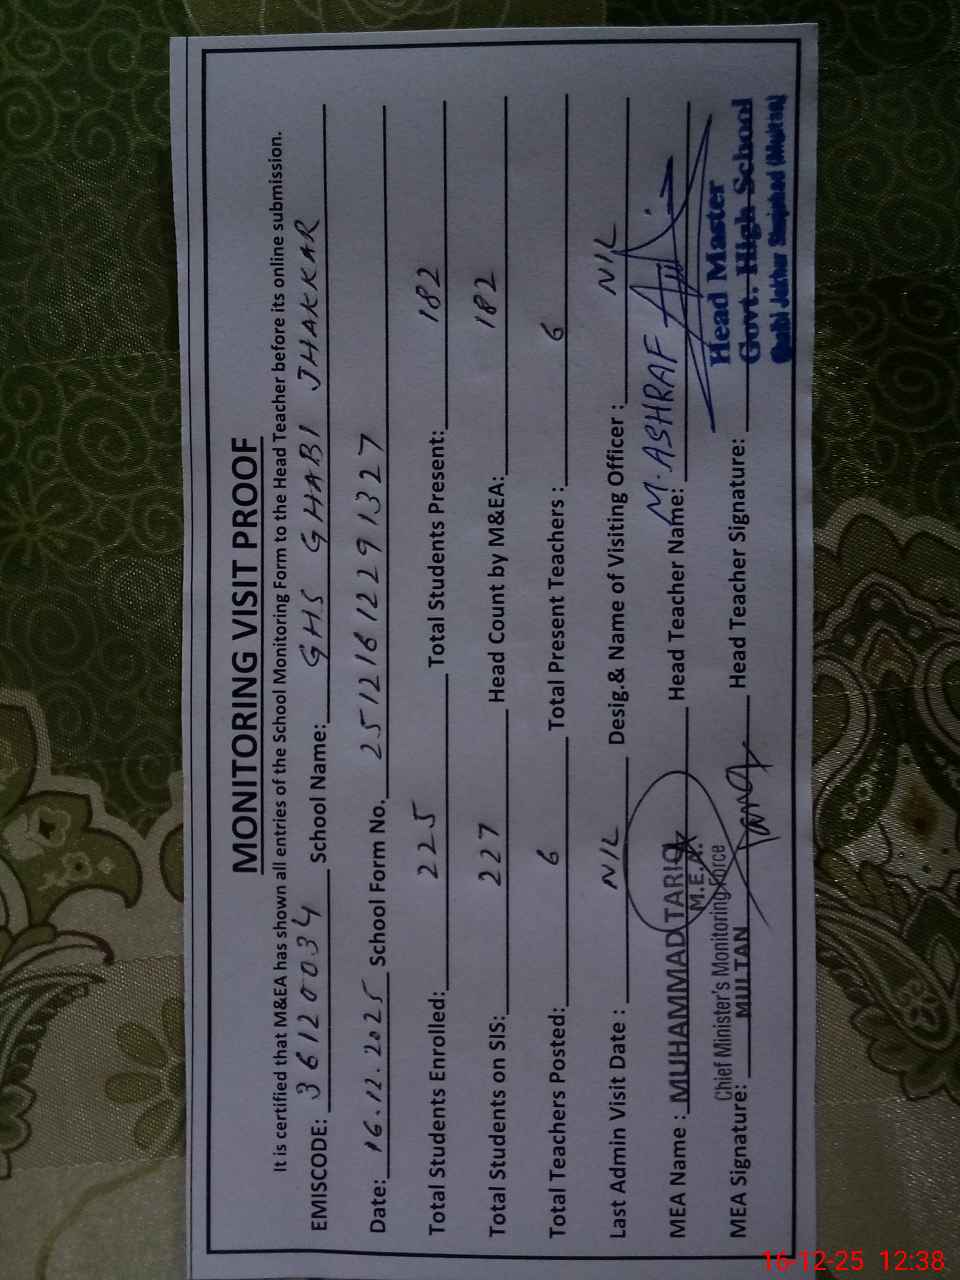 MONITORING VISIT PROOF
It is certified that M&EA has shown all entries of the School Monitoring Form to the Head Teacher before its online submission.
EMISCODE: 36120034 School Name: GHS GHABI JHAKKAR
Date: 16.12.2025 School Form No. 25121612291327
Total Students Enrolled: 225 Total Students Present: 182
Total Students on SIS: 227 Head Count by M&EA: 182
Total Teachers Posted: 6 Total Present Teachers : 6
Last Admin Visit Date : NIL Desig.& Name of Visiting Officer : NIL
MEA Name : MUHAMMAD TARIQ Head Teacher Name: M. ASHRAF
M.E.A.
Chief Minister's Monitoring Force
MULTAN
MEA Signature: Head Teacher Signature:
Head Master
Govt. High School
Ghabi Jakhar Shujabad (Multan)
16-12-25 12:38